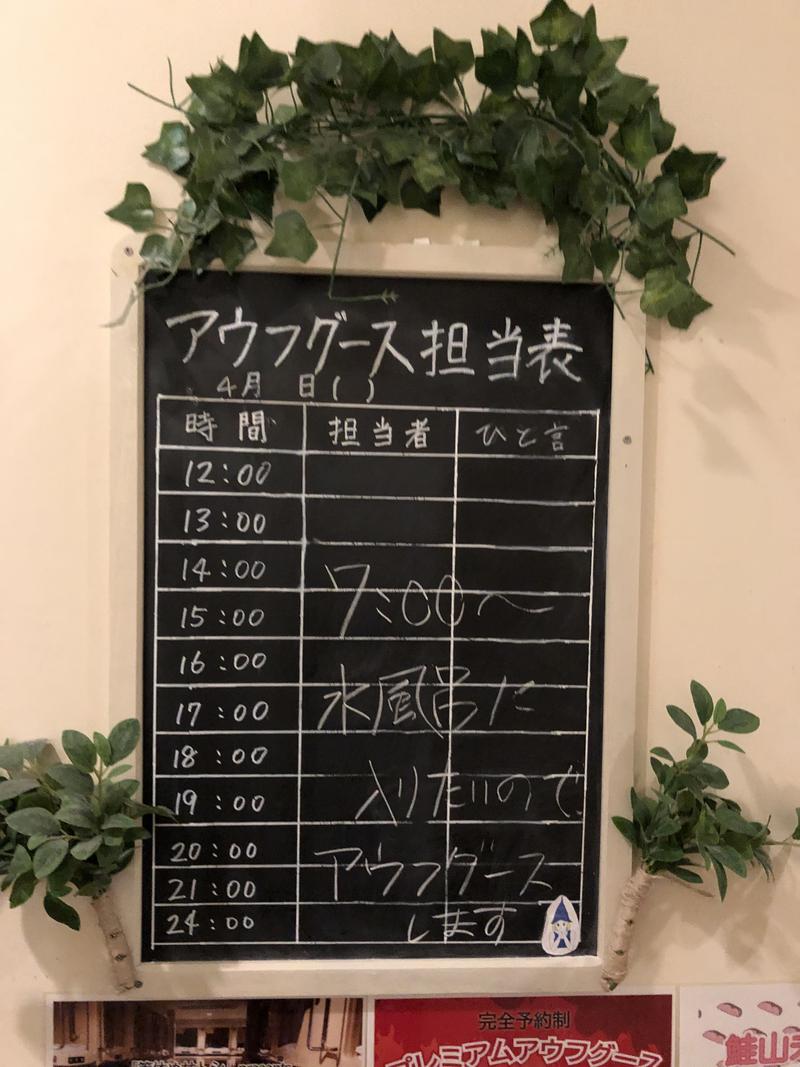 アウフグース担当表
4月 日( )
時間 担当者 ひと言
12:00
13:00
14:00
15:00
16:00
17:00
18:00
19:00
20:00
21:00
24:00
7:00〜
水風呂に
入りたいので
アウフグース
します
完全予約制
プレミアムアウフグース
鮭山未